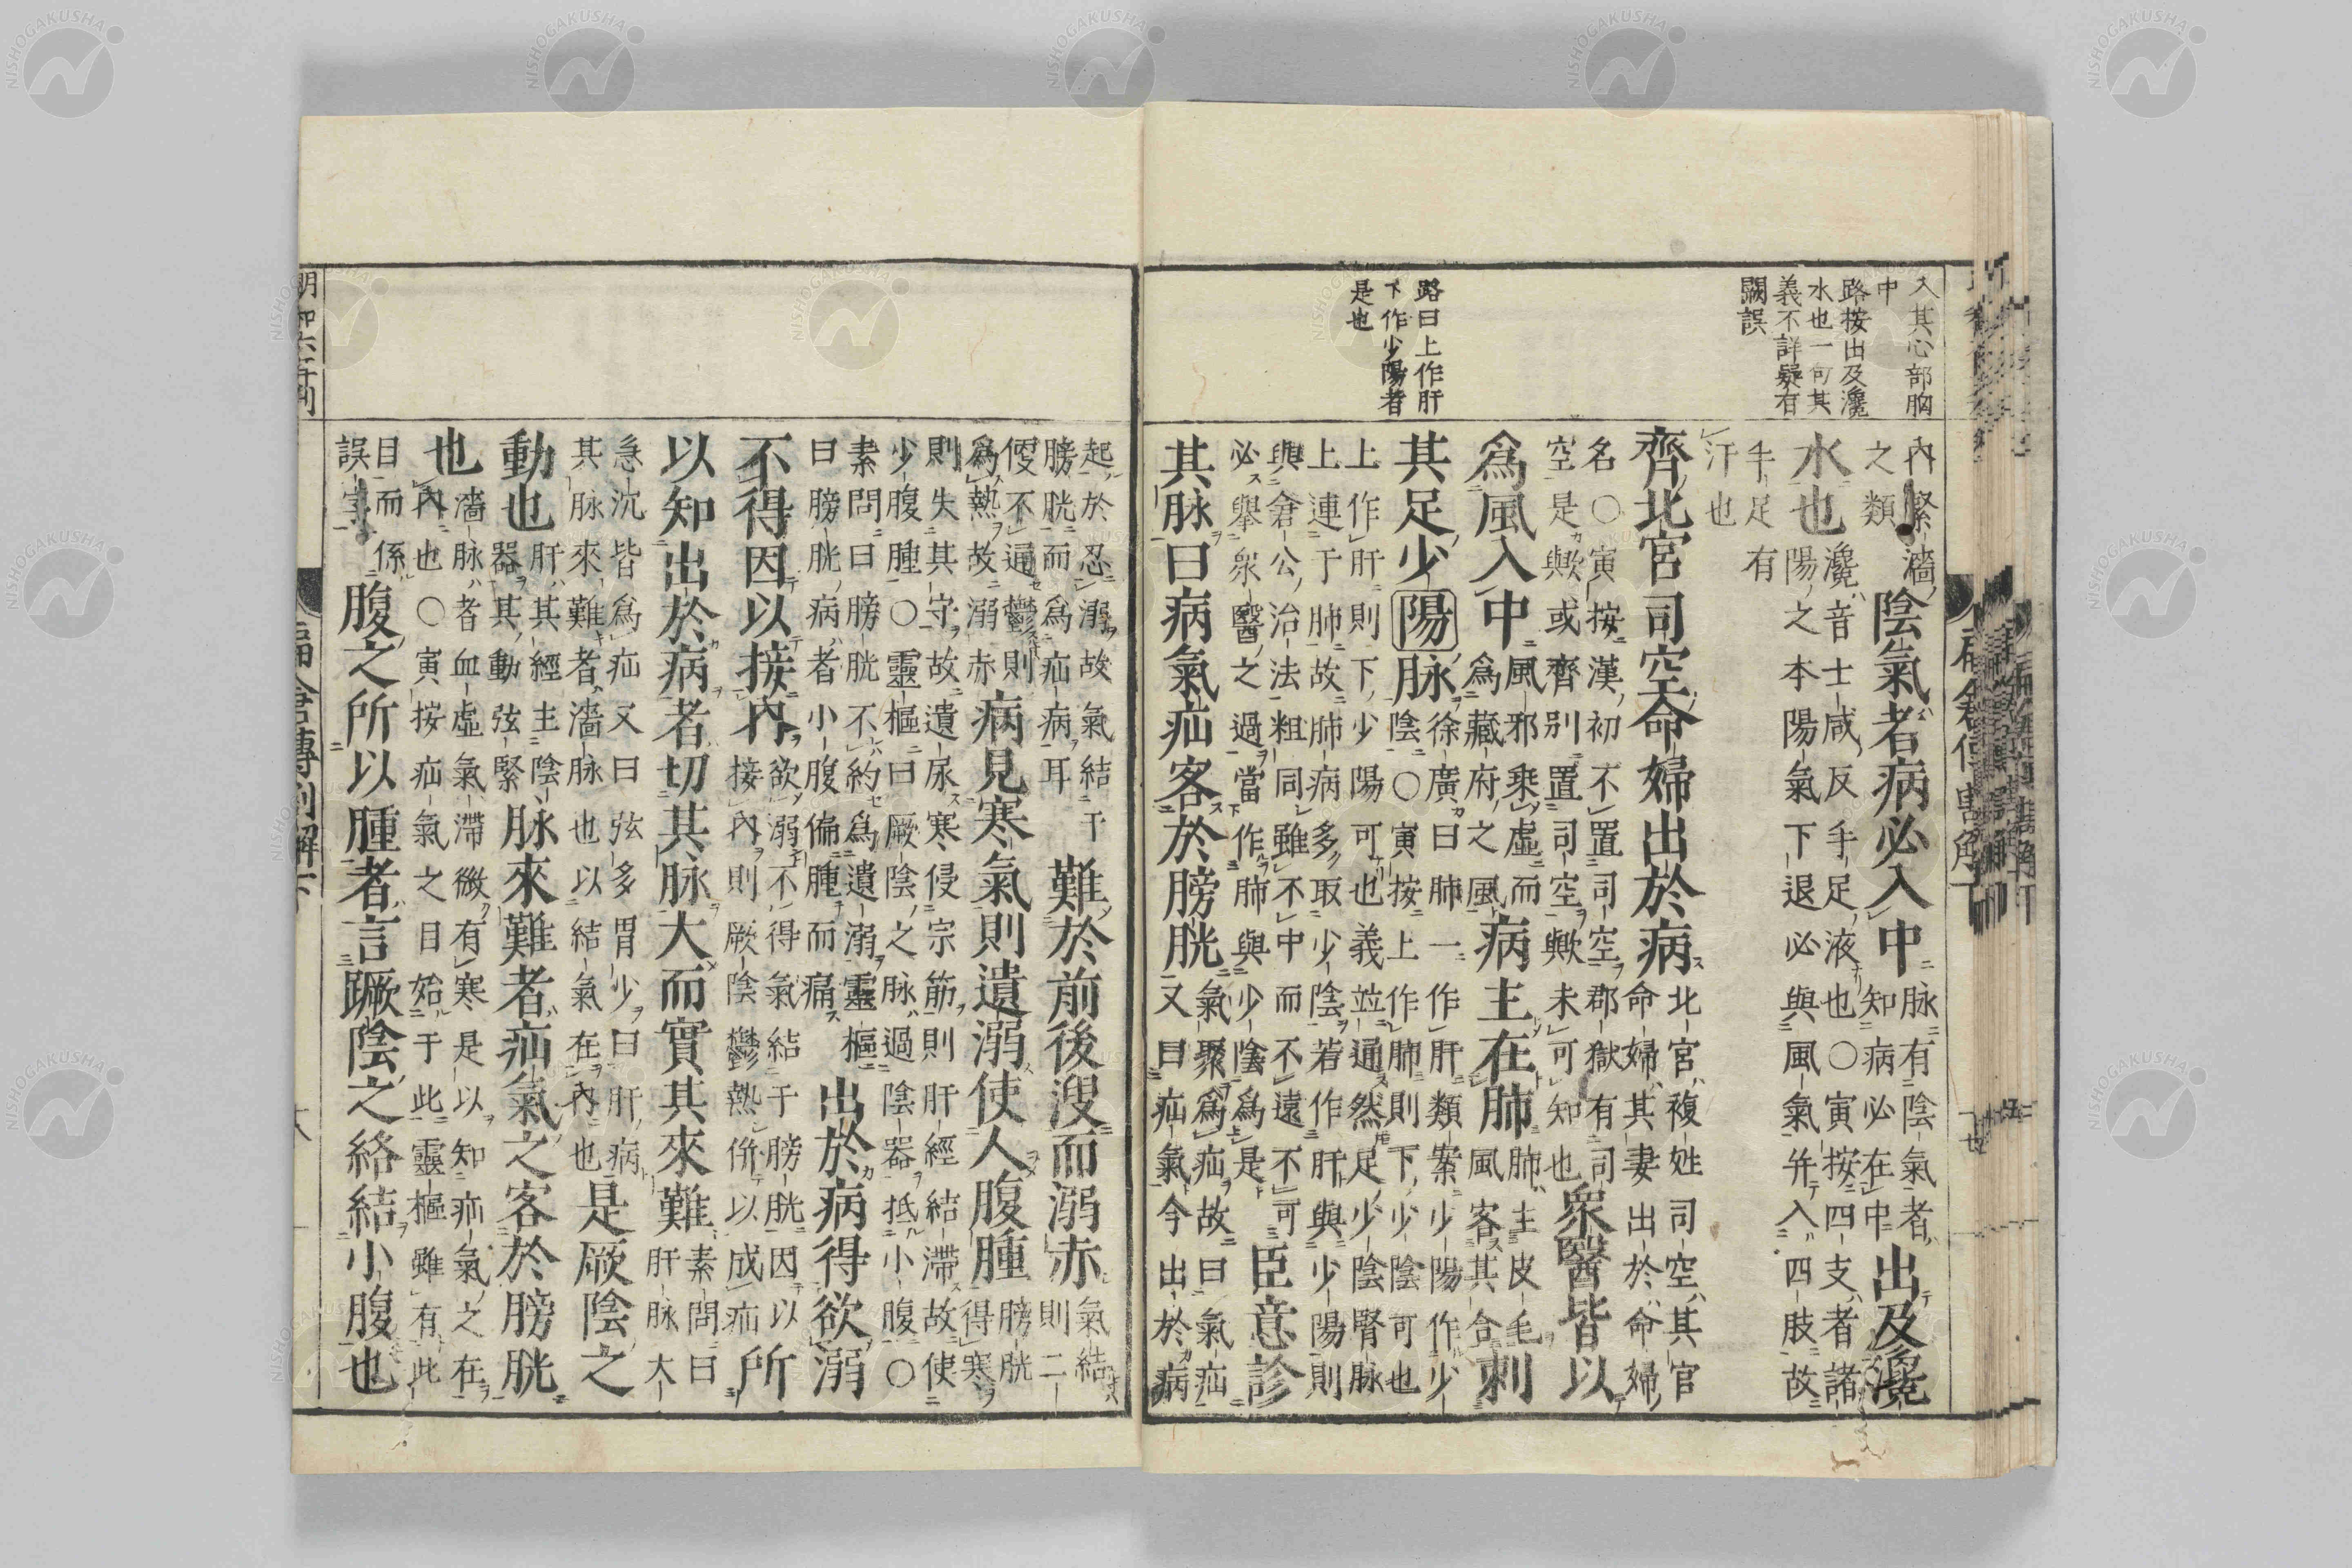 入其心部胸
中
路按出及瀺
水也一句其
義不詳疑有
闕誤
路曰上作肝
下作少陽者
是也
內緊濇之類陰氣者病必入中脉有陰氣者知病必在中出及瀺
水也瀺音士咸反手足液也○寅按四支者諸陽之本陽氣下退必與風氣并入四肢故
手足有汗也
齊北宮司空命婦出於病北宮複姓司空其官命婦其妻出於命婦
名○寅按漢初不置司空郡獄有司空是歟或齊別置司空歟未可知也衆醫皆以
爲風入中風邪乗虛而爲藏府之風病主在肺肺主皮毛風客其合刺
其足少陽脉徐廣曰肺一作肝類案少陽作少陰○寅按上作肺則下少陰可也
上作肝則下少陽可也義並通然足少陰腎脉上連于肺故肺病多取少陰若作肝與少陽則
與倉公治法粗同雖不中而不遠不可必舉衆醫之過當作肺與少陰爲是臣意診
其脉曰病氣疝客於膀胱氣聚爲疝故曰氣疝又曰疝氣今出於病
起於忍溺故氣結于膀胱而爲疝病耳難於前後溲而溺赤氣結則二
便不通鬱則爲熱故溺赤病見寒氣則遺溺使人腹腫膀胱得寒
則失其守故遺尿寒侵宗筋則肝經結滯故使少腹腫○靈樞曰厥陰之脉過陰器抵小腹○
素問曰膀胱不約爲遺溺靈樞曰膀胱病者小腹偏腫而痛出於病得欲溺
不得因以接內欲溺不得氣結于膀胱因以接內則厥陰鬱熱併以成疝所
以知出於病者切其脉大而實其來難素問曰肝脉大
急沉皆爲疝又曰弦多胃少曰肝病其脉來難者濇脉也以結氣在內也是厥陰之
動也肝其經主陰器其動弦緊脉來難者疝氣之客於膀胱
也濇脉者血虛氣滯微有寒是以知疝氣之在內也○寅按疝氣之目始于此靈樞雖有此
目而係誤字腹之所以腫者言蹶陰之絡結小腹也
明和六年刊
扁倉傳割解下